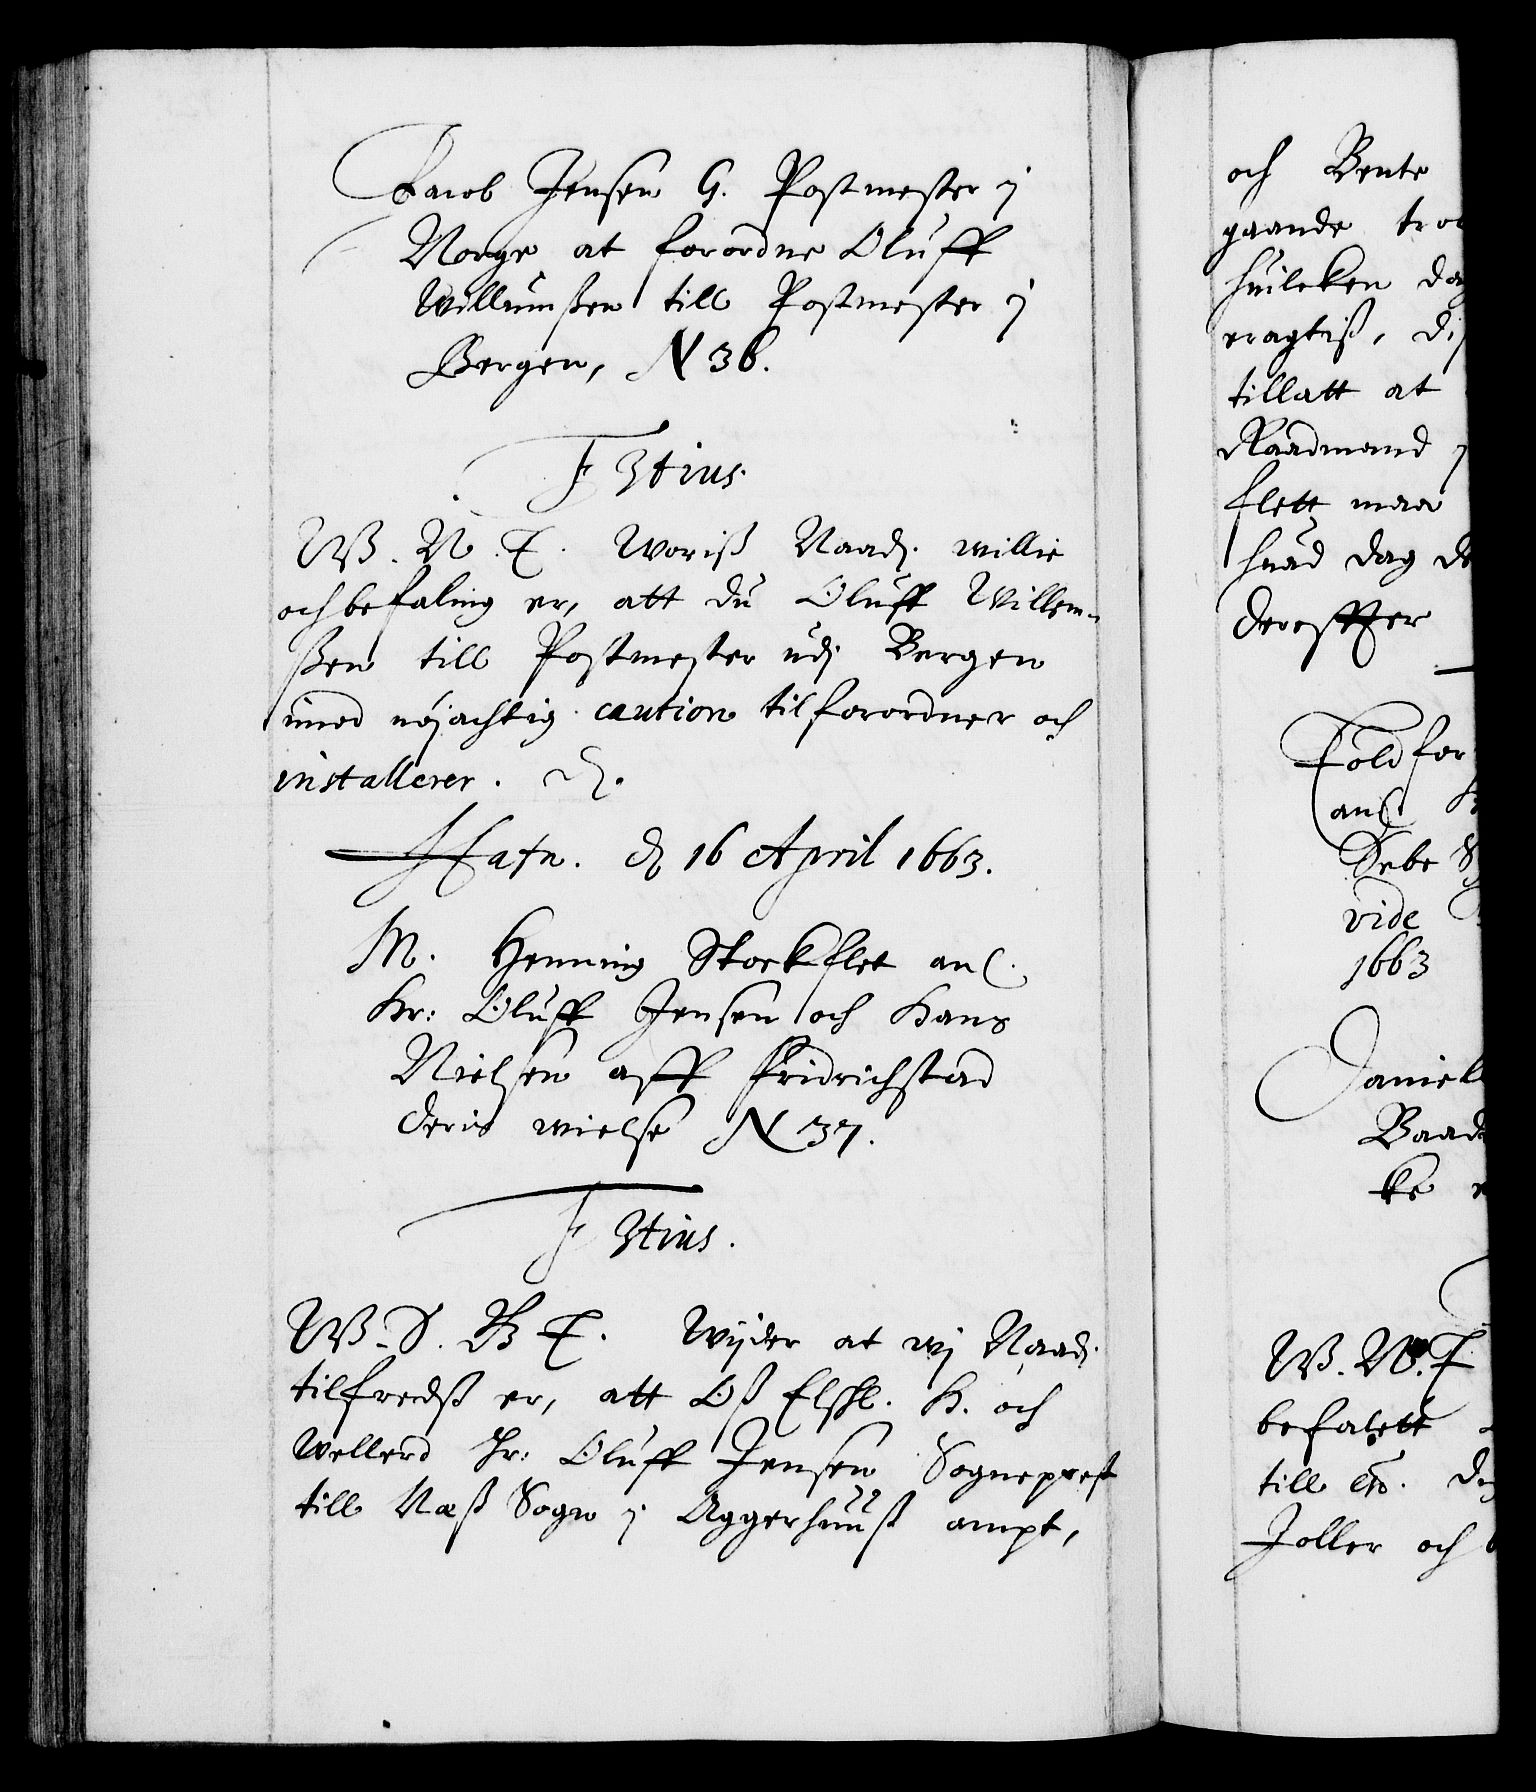 Jacob Jensen G. Postmester j
Norge at forordne Oluff
Willumßen till Postmester j
Bergen, N 36.
F 3tius
W. N. T. Woriß Naad. willie
och befaling er, att du Oluff Willem-
ßen till Postmester udj Bergen
imod nöjachtig caution tilforordner och
installerer. D.
Hafn. d 16 April 1663.
M. Henning Stockflet anl.
Hr: Oluff Jensen och Hans
Nielsen aff Fridrichstad
deris wielse N 37.
F 3tius.
W. S. B T. Wijder at wj Naad.
tilfredß er, att Oß Elskl. H. och
Wellerd Hr: Oluff Jensen Sogneprest
till Næß Sogn j Aggerhuuß ampt,
och Bente
gaande
huilcken
eragtiß,
tillatt at
Raadmand
flett maa
huad dag
dereffter
Toldfor
anl.
Sebe
vide
1663
Daniel
Baad
ke
W. N. T
befalett
till etc.
Toller och